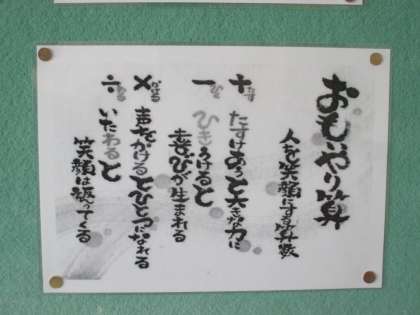 おもいやり算
人を笑顔にする算数
+たす たすけあうと大きな力に
−ひく ひきうけると
喜びが生まれる
×かける 声をかけるとひとつになれる
÷わる いたわると
笑顔は返ってくる